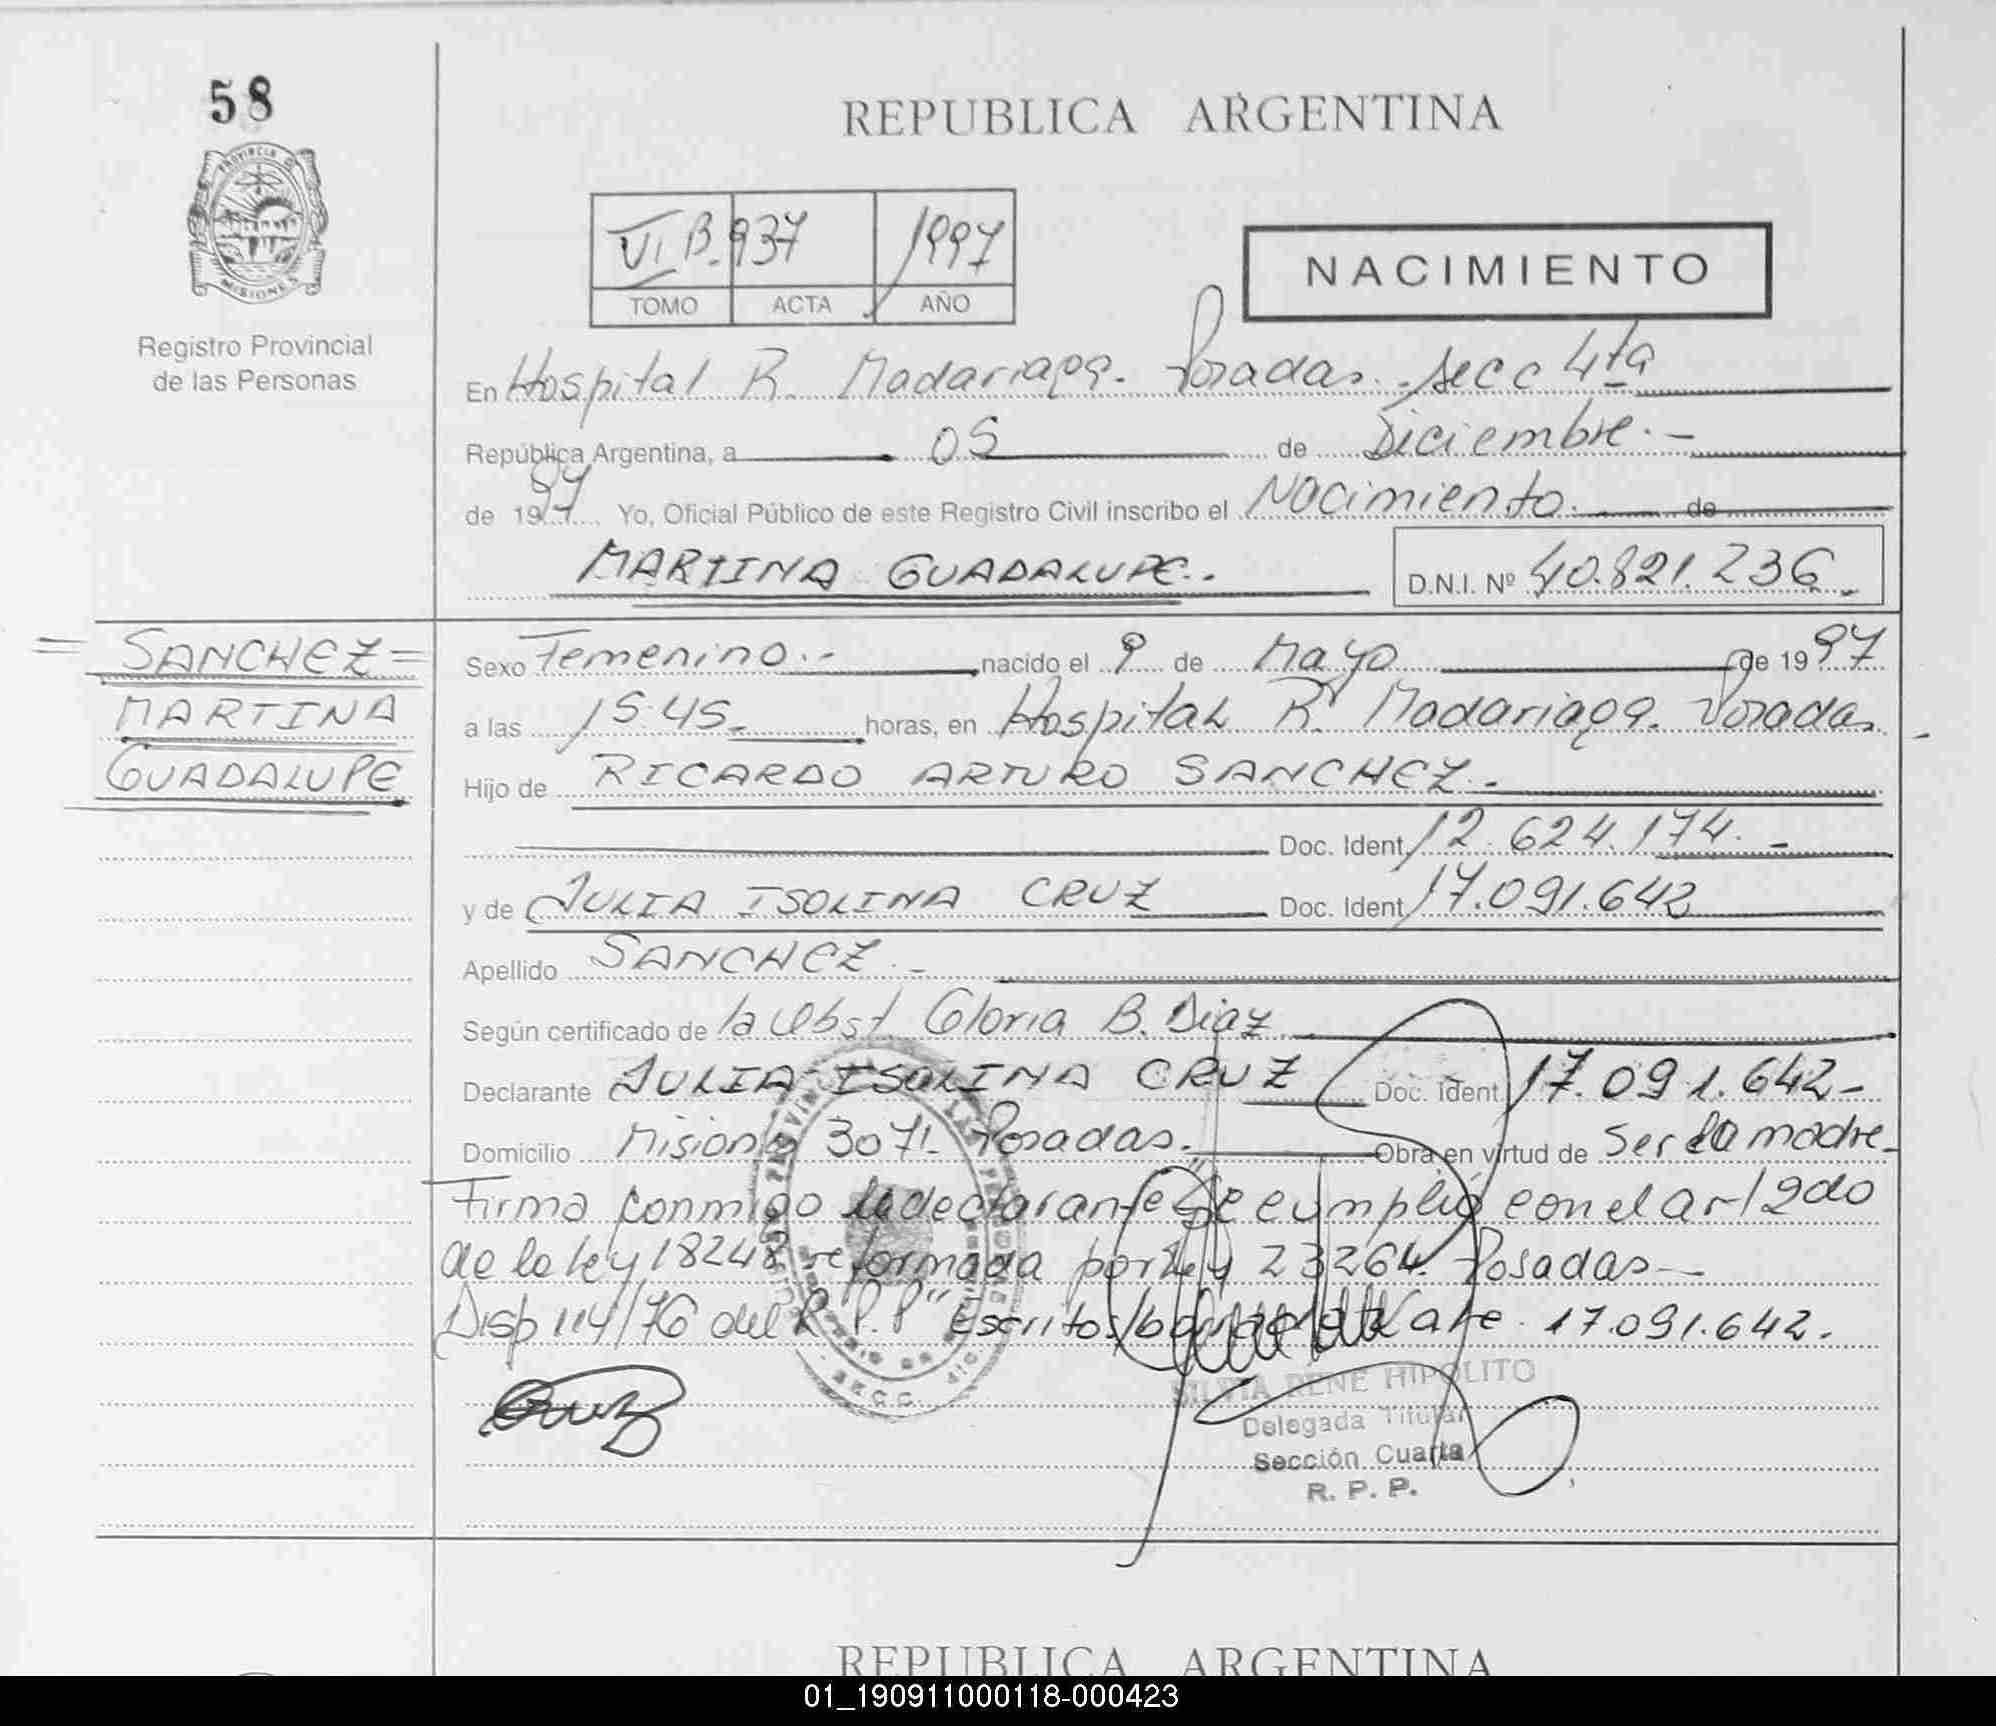 58
PROVINCIA DE
MISIONES
Registro Provincial
de las Personas
REPUBLICA ARGENTINA
VI B. 937 1997
TOMO ACTA AÑO
NACIMIENTO
En Hospital R. Madariaga. Posadas. Secc 4ta
República Argentina, a 05 de Diciembre.-
de 1997 Yo, Oficial Público de este Registro Civil inscribo el Nacimiento. de
MARTINA GUADALUPE.. D.N.I. Nº 40.821.236.
=SANCHEZ=
MARTINA
GUADALUPE
Sexo Femenino.- nacido el 9 de Mayo de 1997
a las 15.45. horas, en Hospital R. Madariaga. Posadas.
Hijo de RICARDO ARTURO SANCHEZ.
Doc. Ident. 12.624.174.-
y de JULIA ISOLINA CRUZ Doc. Ident 17.091.642
Apellido SANCHEZ.-
Según certificado de la Obst Gloria B. Diaz
Declarante JULIA ISOLINA CRUZ Doc. Ident 17.091.642-
Domicilio Misiones 3071. Posadas. Obra en virtud de Ser la madre-
Firma conmigo la declarante Se cumplió con el art 2do
de la ley 18248 reformada por Ley 23264. Posadas-
Disp 114/76 del R.P.P" Escritos/b 17.091.642.
Cruz
SILVIA RENE HIPOLITO
Delegada Titular
Sección Cuarta
R. P. P.
REPUBLICA ARGENTINA
01_190911000118-000423